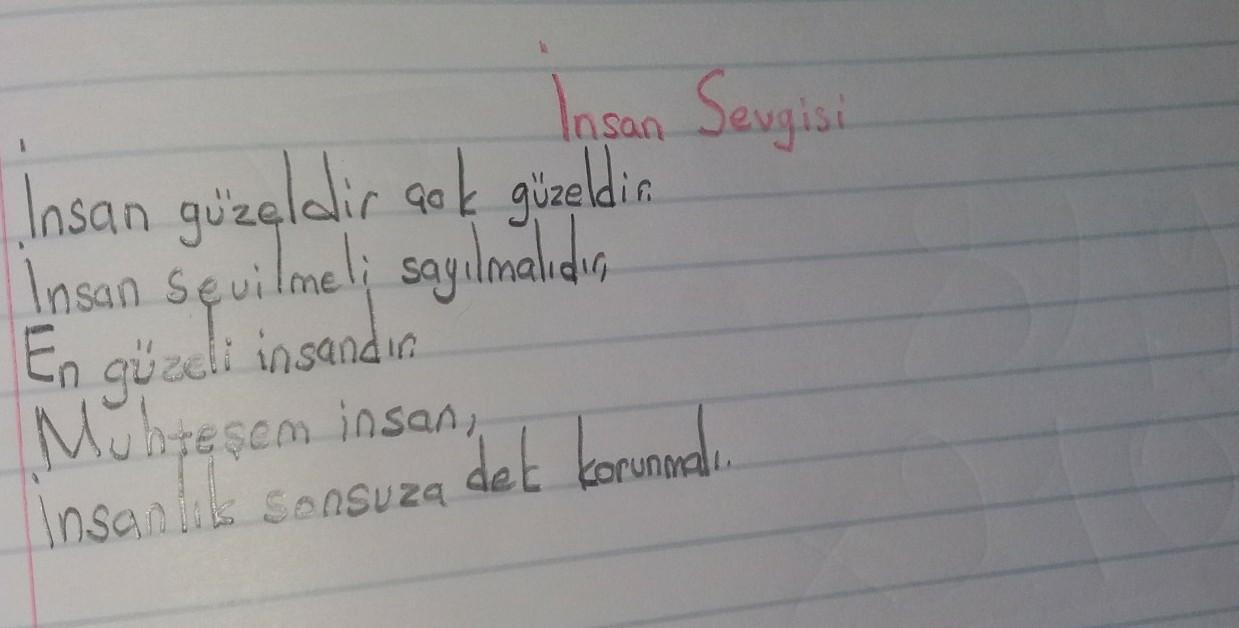 İnsan Sevgisi
İnsan güzeldir çok güzeldir.
İnsan sevilmeli sayılmalıdır,
En güzeli insandır.
Muhteşem insan,
İnsanlık sonsuza dek korunmalı.